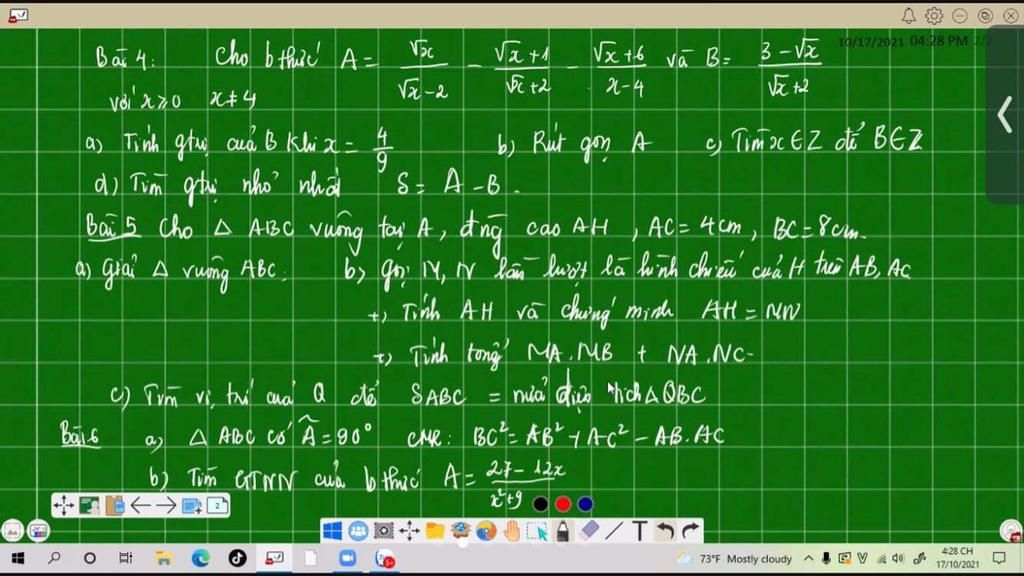 10/17/2021 04:28 PM 2/2
Bài 4: Cho b thức A = √x/(√x-2) - (√x+1)/(√x+2) - (√x+6)/(x-4) và B = (3-√x)/(√x+2)
với x≥0 x≠4
a) Tính gtrị của B khi x = 4/9 b) Rút gọn A c) Tìm x∈Z để B∈Z
d) Tìm gtrị nhỏ nhất S = A - B.
Bài 5 Cho △ ABC vuông tại A, đng cao AH, AC = 4cm, BC = 8cm.
a) Giải △ vuông ABC. b) gọi M, N lần lượt là hình chiếu của H trên AB, AC
+, Tính AH và chứng minh AH = MN
+, Tính tổng MA.MB + NA.NC
c) Tìm vị trí của Q để SABC = nửa diện tích △QBC
Bài 6 a) △ ABC có Â = 90° CMR: BC² = AB² + AC² - AB.AC
b) Tìm GTNN của b thức A = (27-12x)/(x²+9)
2
T
73°F Mostly cloudy
4:28 CH
17/10/2021